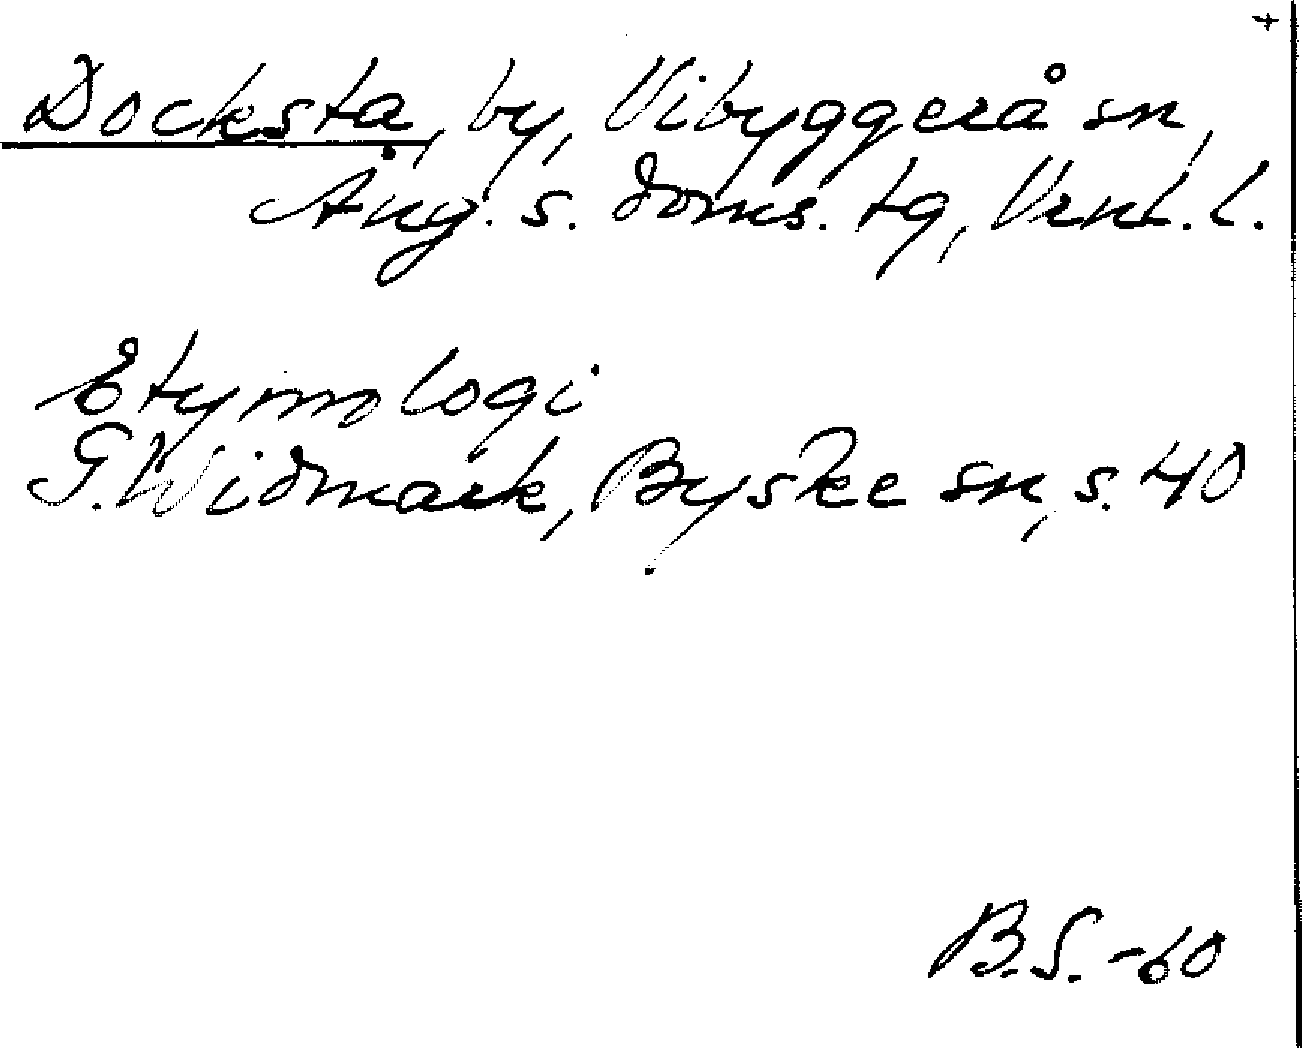 Docksta, by, Vibyggerå sn,
Ång. s. doms. tg, Vrnl. l.
Etymologi
G. Widmark, Byske sn, s. 40
B.S. -60